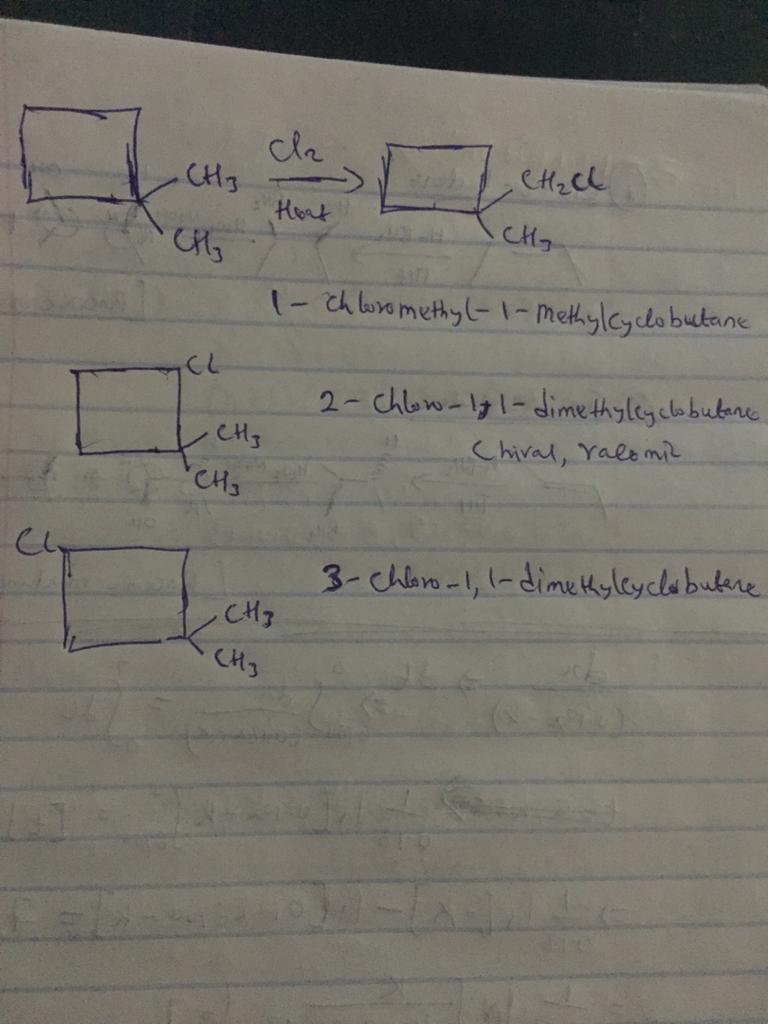 CH3
Cl2
Heat
CH3
CH2Cl
CH3
1-Chloromethyl-1-Methylcyclobutane
Cl
CH3
CH3
2-Chloro-1,1-dimethylcyclobutane
Chiral, racemic
Cl
CH3
CH3
3-Chloro-1,1-dimethylcyclobutane